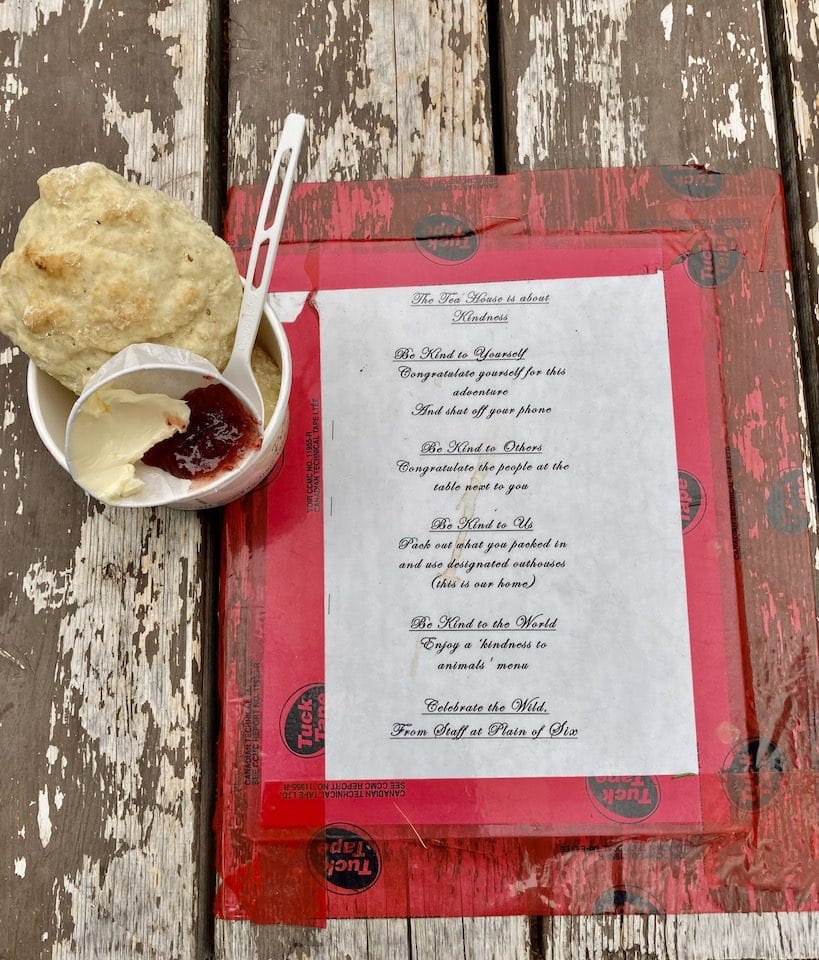 The Tea House is about
Kindness
Be Kind to Yourself
Congratulate yourself for this
adventure
And shut off your phone
Be Kind to Others
Congratulate the people at the
table next to you
Be Kind to Us
Pack out what you packed in
and use designated outhouses
(this is our home)
Be Kind to the World
Enjoy a 'kindness to
animals' menu
Celebrate the Wild,
From Staff at Plain of Six
Tuck
Tape
Tuck
Tape
Tuck
Tape
Tuck
Tape
Tuck
Tape
Tape
CANADIAN TECHNICAL TAPE LTD.
SEE CCMC REPORT NO 11955-R
CANADIAN TECHNICAL TAPE LTÉE
VOIR CCMC NO. 11955-R